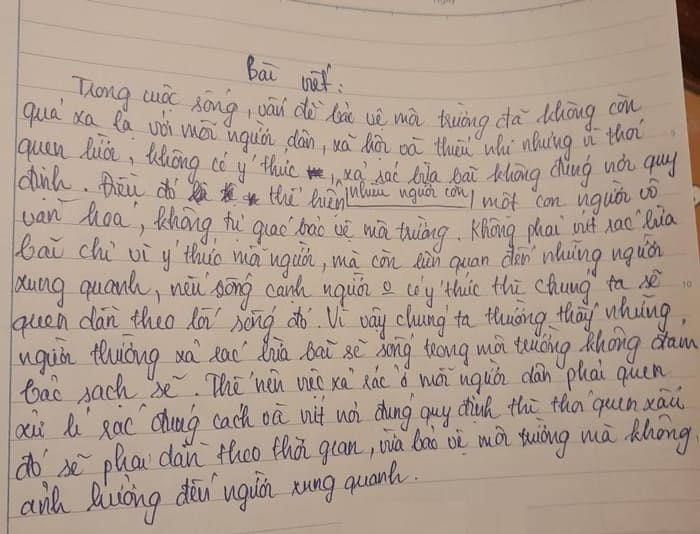 Bài viết:
Trong cuộc sống, vấn đề bảo vệ môi trường đã không còn
quá xa lạ với mỗi người dân, xã hội và thiếu nhi nhưng vì thói
quen lười, không có ý thức, xả rác bừa bãi không đúng nơi quy
định. Điều đó thể hiện nhiều người còn một con người vô
văn hoá, không tự giác bảo vệ môi trường. Không phải vứt rác bừa
bãi chỉ vì ý thức mỗi người, mà còn liên quan đến những người
xung quanh, nếu sống cạnh người o có ý thức thì chúng ta sẽ
quen dần theo lối sống đó. Vì vậy chúng ta thường thấy những
người thường xả rác bừa bãi sẽ sống trong môi trường không đảm
bảo sạch sẽ. Thế nên việc xả rác ở mỗi người dân phải quen
xử lí rác đúng cách và vứt nơi đúng quy định thì thói quen xấu
đó sẽ phai dần theo thời gian, vừa bảo vệ môi trường mà không
ảnh hưởng đến người xung quanh.